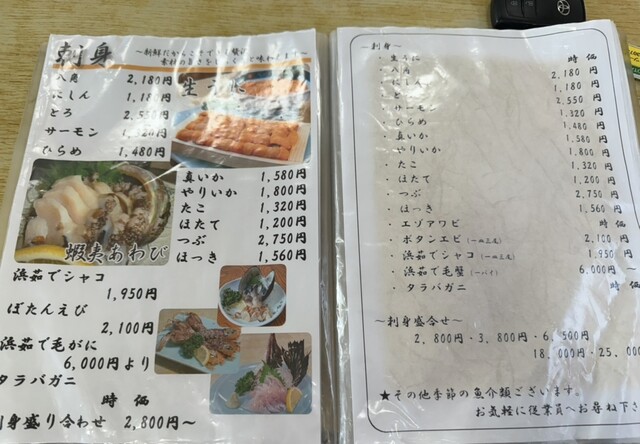 刺身
生うに
八角 2,180円
にしん 1,180円
とろ
サーモン 1,320円
ひらめ 1,480円
真いか 1,580円
やりいか 1,800円
たこ 1,320円
ほたて 1,200円
つぶ 2,750円
ほっき 1,560円
蝦夷あわび
浜茹でシャコ
1,950円
ぼたんえび
2,100円
浜茹で毛がに
6,000円より
タラバガニ
時価
刺身盛り合わせ 2,800円～
～刺身～
・生うに 時価
・八角 2,180円
1,180円
2,550円
・サーモン 1,320円
・ひらめ 1,480円
・真いか 1,580円
・やりいか 1,800円
・たこ 1,320円
・ほたて 1,200円
・つぶ 2,750円
・ほっき 1,560円
・エゾアワビ 時価
・ボタンエビ 2,100円
・浜茹でシャコ 1,950円
・浜茹で毛蟹（一パイ） 6,000円
・タラバガニ 時価
～刺身盛合せ～
2,800円・3,800円・
★その他季節の魚介類ございます。
お気軽に従業員へお尋ね下さ